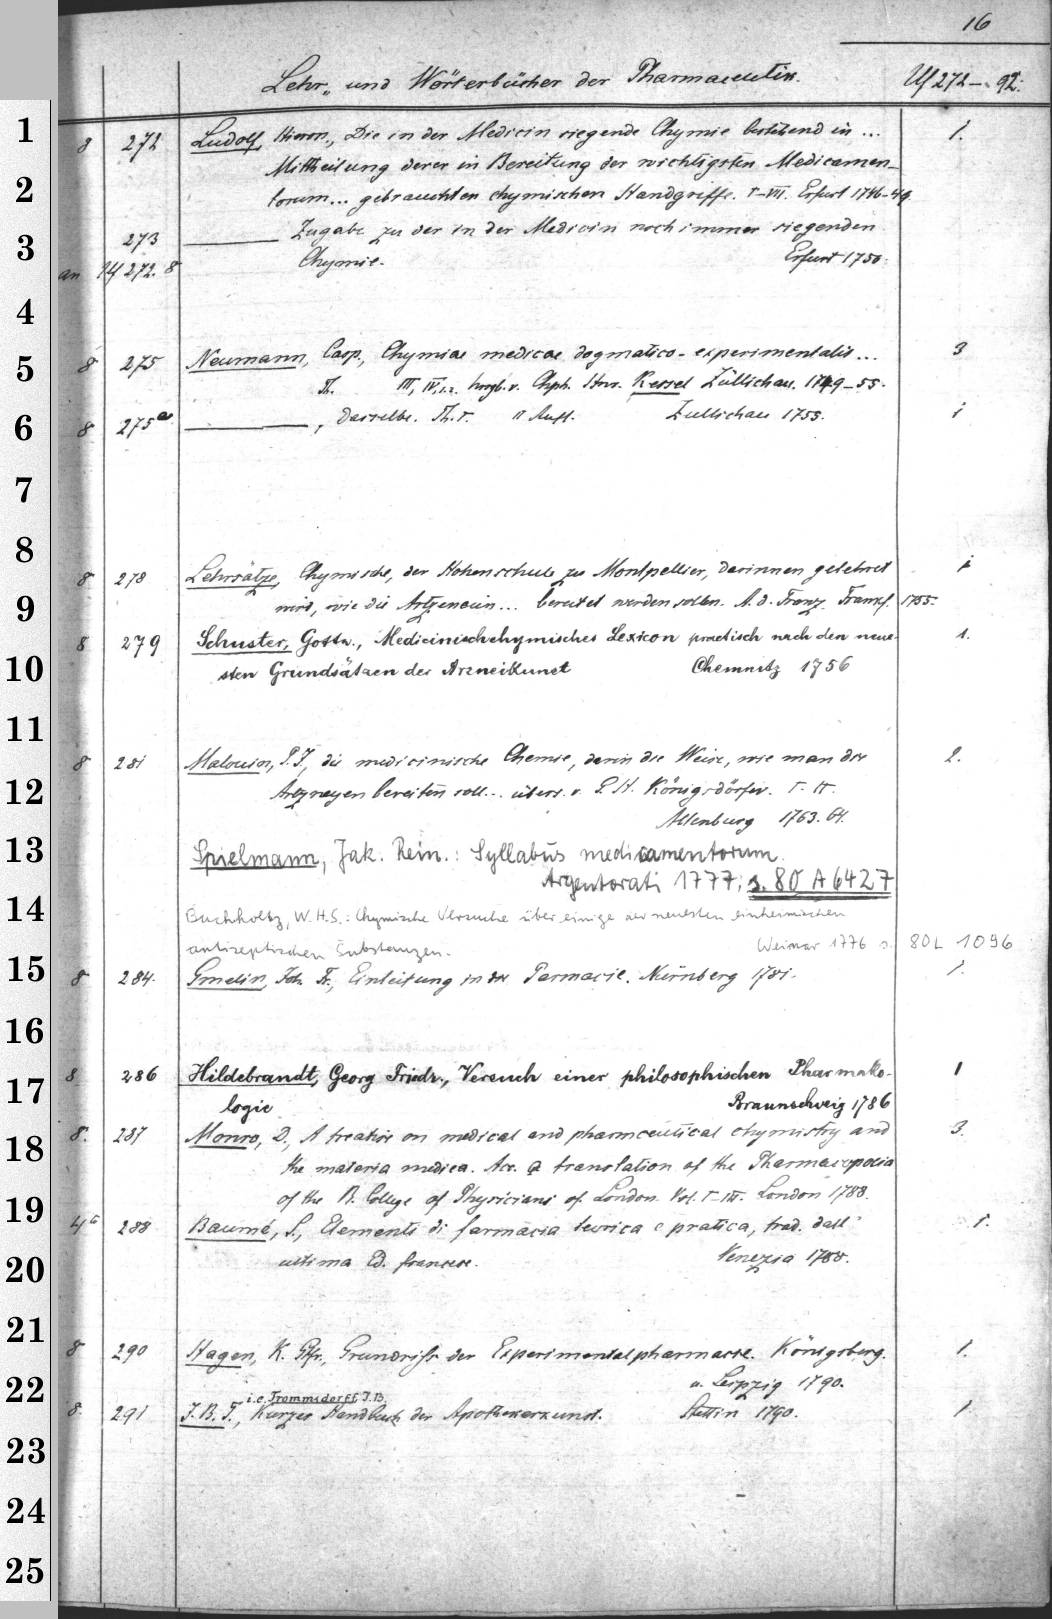 16
Lehr- und Wörterbücher der Pharmaceutik. Uf 272-92.
1
8 272 Ludolf, Hieron., Die in der Medicin siegende Chymie bestehend in ... 1.
Mittheilung derer in Bereitung der wichtigsten Medicamen-
2
torum... gebrauchten chymischen Handgriffe. I-VII. Erfurt 1746-49.
3
273 ——— Zugabe zu der in der Medicin noch immer siegenden
an Uf 272. 8 Chymie. Erfurt 1750.
4
5
8 275 Neumann, Casp., Chymiae medicae dogmatico-experimentalis ... 3
Th. III, IV,1.2. hrsgb. v. Chph. Hnr. Kessel Züllichau. 1749-55.
6
8 275a ———, Dasselbe. Th. I. II Aufl. Züllichau 1755. 1
7
8
8 278 Lehrsätze, Chymische, der Hohenschule zu Montpellier, darinnen gelehret 1
9
wird, wie die Artzeneien... bereitet werden sollen. A. d. Franz. Frankf. 1755.
8 279 Schuster, Gottw., Medicinischchymisches Lexicon practisch nach den neue- 1.
10
sten Grundsätzen der Arzneikunst Chemnitz 1756
11
8 281 Malouin, P.J., die medicinische Chemie, darin die Weise, wie man die 2.
12
Artzneyen bereiten soll... übers. v. E.H. Königsdörfer. I-II.
Altenburg 1763.64.
13
Spielmann, Jak. Rein.: Syllabus medicamentorum.
Argentorati 1777; s. 80 A 6427
14
Buchholtz, W.H.S.: Chymische Versuche über einige der neuesten einheimischen
antiseptischen Substanzen. Weimar 1776 s. 80L 1096
15
8 284. Gmelin, Joh. Fr., Einleitung in die Parmacie. Nürnberg 1781. 1.
16
8 286 Hildebrandt, Georg Friedr., Versuch einer philosophischen Pharmako- 1
17
logie Braunschweig 1786
8. 287 Monro, D., A treatise on medical and pharmceutical chymistry and 3.
18
the materia medica. Acc. a translation of the Pharmacopoeia
of the R. College of Physicians of London. Vol. I-III. London 1788.
19
4° 288 Baumé, S., Elementi di farmacia teorica e pratica, trad. dall' 1.
20
ultima Ed. francese. Venezia 1788.
21
8 290 Hagen, K. Gfr., Grundriss der Experimentalpharmacie. Königsberg. 1.
22
u. Leipzig 1790.
i.e. Trommsdorff, J.B.
8. 291 J.B.T., Kurzes Handbuch der Apothekerkunst. Stettin 1790. 1
23
24
25